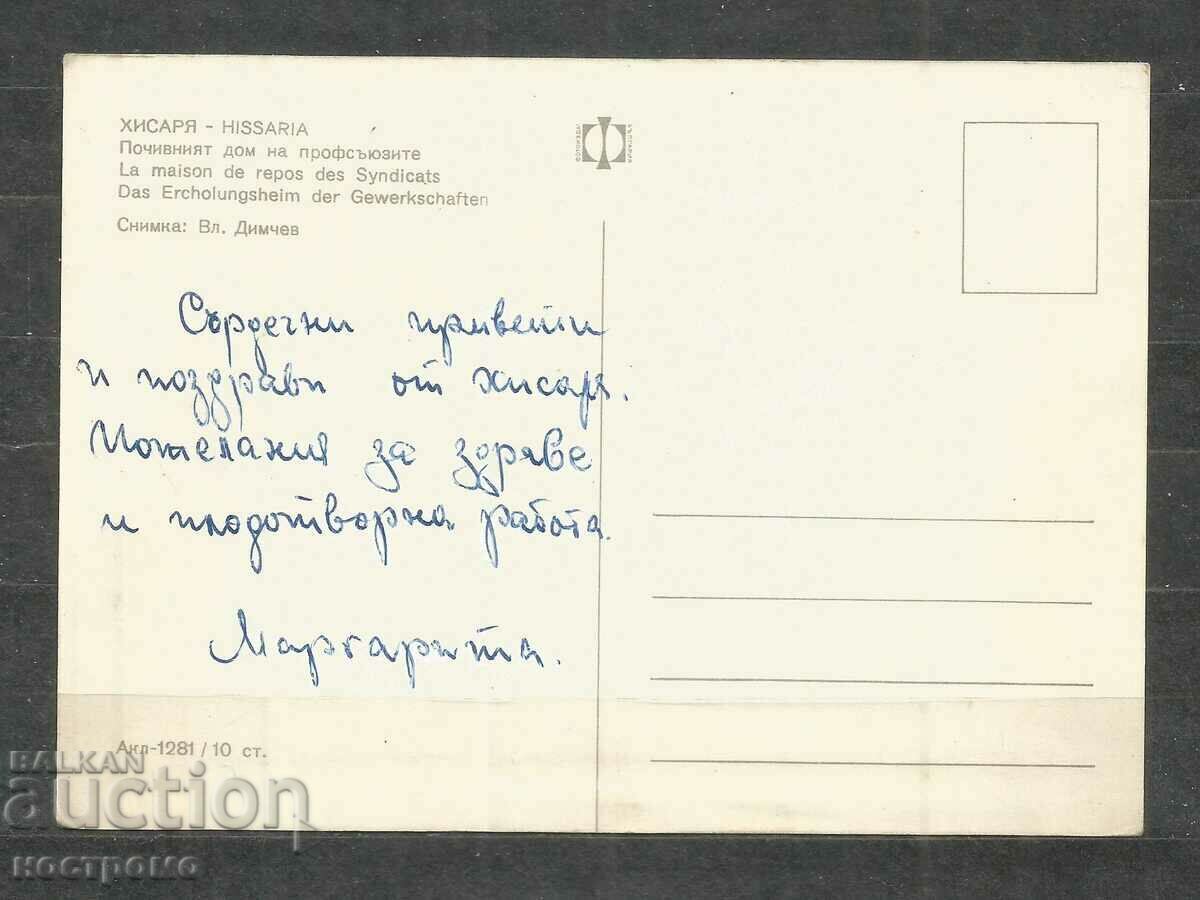 ХИСАРЯ - HISSARIA
Почивният дом на профсъюзите
La maison de repos des Syndicats
Das Ercholungsheim der Gewerkschaften
Снимка: Вл. Димчев
ФОТОИЗДАТ
БЪЛГАРИЯ
Сърдечни привети
и поздрави от хисаря.
Пожелания за здраве
и плодотворна работа.
Маргарита.
Акл-1281/10 ст.
BALKAN
auction
костромо